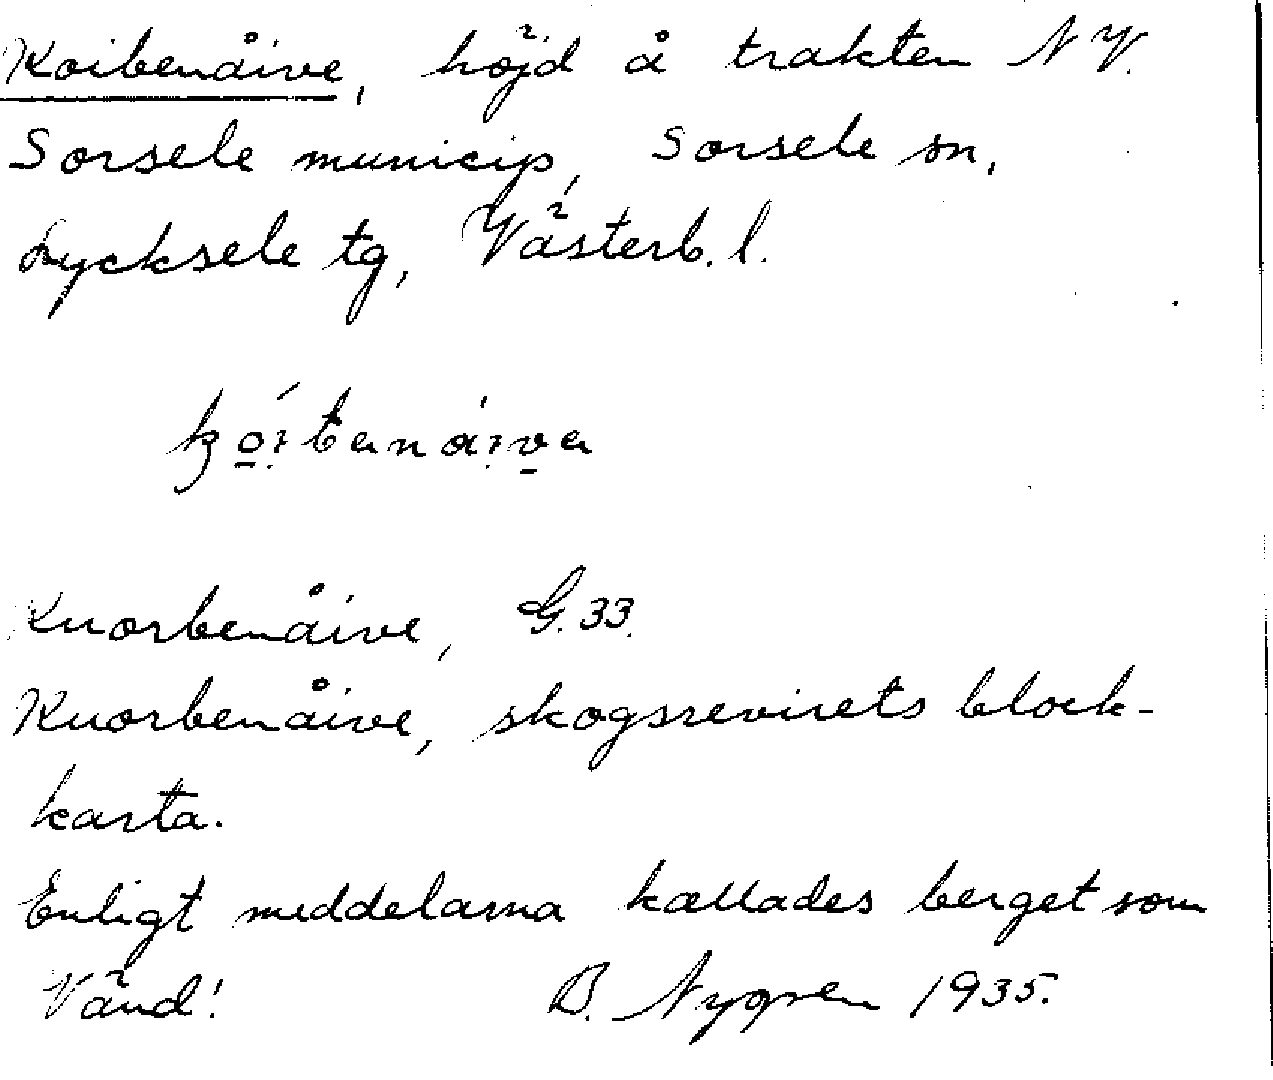 Koibenåive, höjd å trakten N V.
Sorsele municip, Sorsele sn,
Lycksele tg, Västerb. l.
Kuorbenåive, G. 33.
Kuorbenåive, skogsrevirets block-
karta.
Enligt meddelarna kallades berget som
Vänd! B. Nygren 1935.